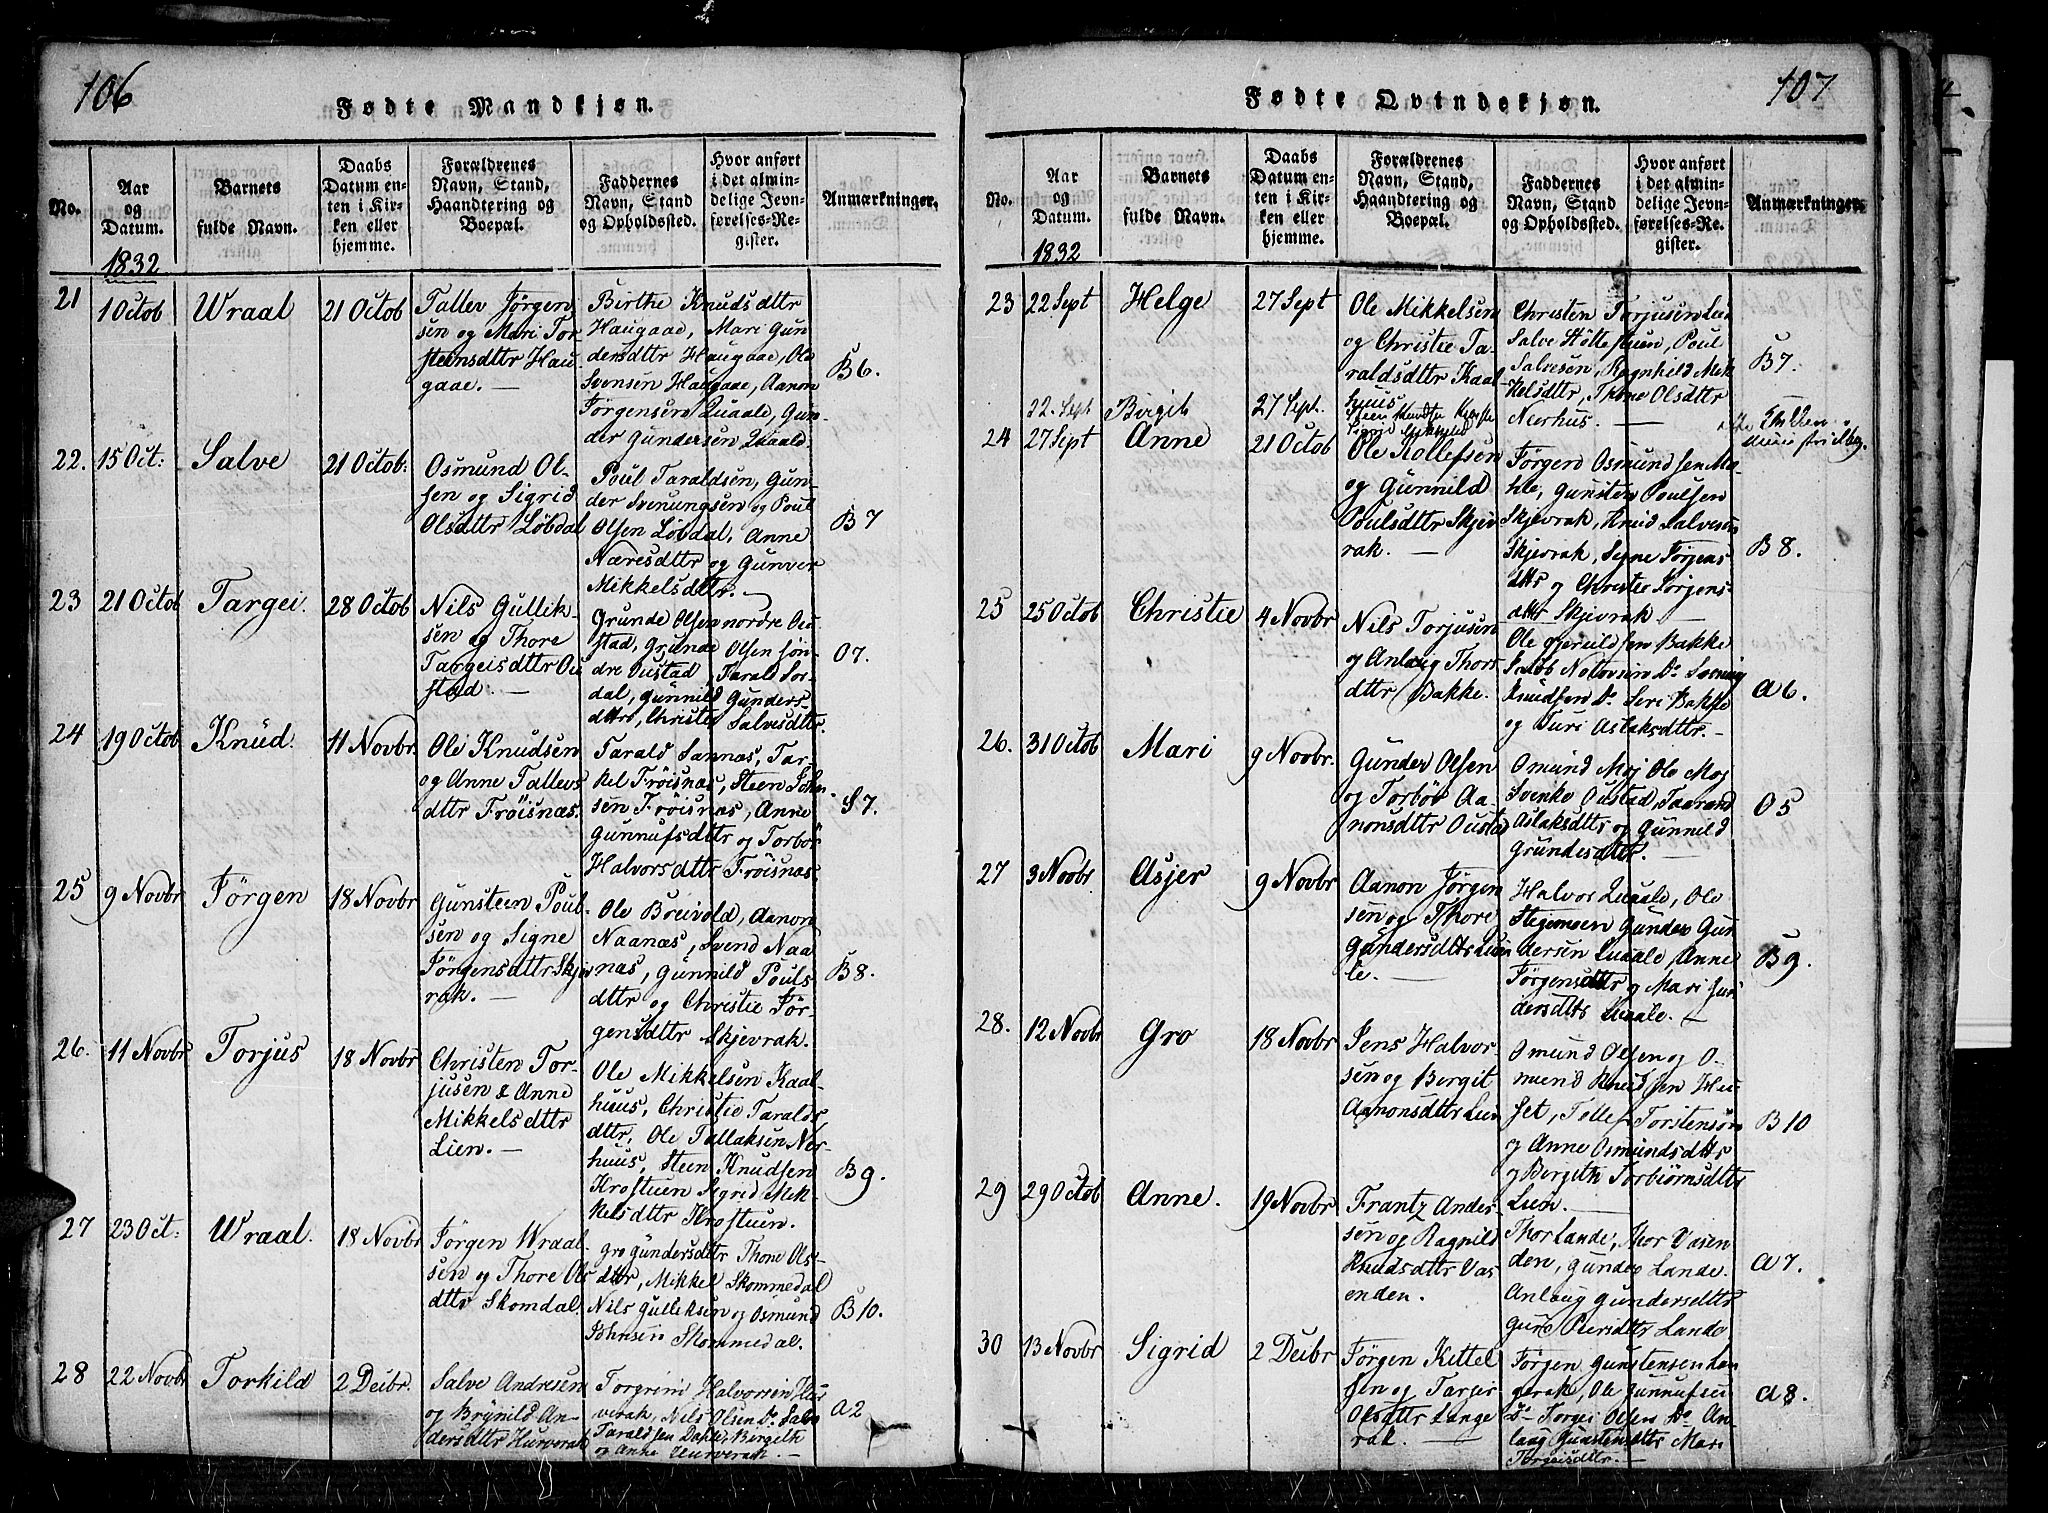 106
Fødte Mandkjøn.
No.
Aar
og
Datum.
Barnets
fulde Navn.
Daabs
Datum en-
ten i Kir-
ken eller
hjemme.
Forældrenes
Navn, Stand,
Haandtering og
Boepæl.
Faddernes
Navn, Stand
og Opholdssted.
Hvor anført
i det almin-
delige Jevn-
førelses-Re-
gister.
Anmærkninger.
1832
21
1 Octob
Wraal
21 Octob
Tallev Jørgen
sen og Mari Tor
steensdttr Hau
gaae. —
Birthe Knudsdttr
Haugaae, Mari Gun
dersdttr Haugaae, Ole
Svensen Haugaae, Aanon
Jørgensen Quaale, Gun-
der Gundersen Quaale.
B 6.
22.
15 Oct:
Salve
21 Octob:
Osmund Ol-
sen og Sigrid
Olsdttr Løbdal
Poul Taraldsen, Gun-
der Svenungsen og Poul
Olsen Løbdal, Anne
Næresdttr og Gunver
Mikkelsdttr. —
B 7
23
21 Octob
Targei.
28 Octob
Nils Gullik-
sen og Thore
Targeisdttr Ou
stad. —
Grunde Olsen nordre Ou-
stad, Grunde Olsen søn-
dre Oustad Tarald Sor-
dal, Gunnild Gunders-
dttr, Christie Salvesdttr.
O 7.
24
19 Octob
Knud.
11 Novbr.
Ole Knudsen
og Anne Tallevs
dttr Frøisnæs.
Tarald Sannæs, Tar-
kel Frøisnæs, Steen Joh-
sen Frøisnæs, Anne
Gunnufsdttr og Torbør
Halvorsdttr Frøisnæs
S 7.
25
9 Novbr
Jørgen
18 Novbr
Gunsteen Poul-
sen og Signe
Jørgensdttr Skjev
rak. —
Ole Breivold, Aanon
Naanæs, Svend Naa
næs, Gunnild Pouls
dttr og Christie Jør-
gensdttr Skjevrak.
B 8.
26.
11 Novbr
Torjus
18 Novbr
Christen Tor-
jusen & Anne
Mikkelsdttr
Lien. —
Ole Mikkelsen Kaal-
huus, Christie Taralds
dttr, Ole Tallaksen Ner-
huus, Steen Knudsen
Krostuen Sigrid Mik-
kelsdttr Krostuen.
B 9.
27
23 Oct:
Wraal.
18 Novbr
Jørgen Wraal-
sen og Thore Ols
dttr Skomdal.
Gro Gundersdttr Thone Ols-
dttr, Mikkel Skommedal
Nils Gulleksen og Osmund
Johnsen Skommedal.
B 10.
28
22 Novbr
Torkild
2 Decbr.
Salve Andresen
og Brynild An-
dersdttr Hurverak
Torgrim Halvorsen Hur
verak, Nils Olsen Do Salve
Taraldsen Dahle, Bergith
og Anne Hurverak. —
A 2
107
Fødte Qvindekjøn.
No.
Aar
og
Datum.
Barnets
fulde Navn.
Daabs
Datum en-
ten i Kir-
ken eller
hjemme.
Forældrenes
Navn, Stand,
Haandtering og
Boepæl.
Faddernes
Navn, Stand
og Opholdssted.
Hvor anført
i det almin-
delige Jevn-
førelses-Re-
gister.
Anmærkninger.
1832
23
22 Sept
Helge
27 Sept
Ole Mikkelsen
og Christie Ta-
raldsdttr Kaal-
huus
Christen Torjusen Lien
Salve Støltestuen, Poul
Salvesen, Ragnhild Mik
kelsdttr, Thone Olsdttr
Nierhus. —
B 7.
22. Sept
Birgit
27 Sept.
Steen Knudsen
24
27 Sept
Anne
21 Octob
Ole Rollefsen
og Gunnild
Poulsdttr Skjev
rak. —
Jørgen Osmundsen Mo-
Gunsten Poulsen
Skjevrak, Knud Salvesen
Skjevrak, Signe Jørgens
dttr og Christie Jørgens-
dttr Skjevrak —
B 8.
25
25 Octob
Christie
4 Novbr
Nils Torjusen
og Anlaug Thors
dttr Bakke.
Ole Gjeruldsen Bakke
Knudsen Do Seri Bakke
og Turi Aslaksdttr. —
A 6.
26.
31 Octob
Mari
9 Novbr.
Gunder Olsen
og Torbør Aa-
nonsdttr Oustad
Omund Moj Ole Moj
Svenke Oustad, Taarand
Aslaksdttr og Gunnild
Grundesdttr. —
O 5
27
3 Novbr
Asjer
9 Novbr
Aanon Jørgen
sen og Thore
Gundersdttr Quaa
le. —
Halvor Quaale, Ole
Stiegensen Gunder Gun
dersen Quaale, Anne
Jørgensdttr og Mari Gun
dersdttr Quaale. —
B 9.
28.
12 Novbr
Gro
18 Novbr
Jens Halvor-
sen og Bergit
Aanonsdttr Lien
Osmund Olsen og O-
smund Knudsen Hu-
set, Tollef Torstensøn
og Anne Osmundsdttr
og Bergith Torbiørnsdttr
Lien. —
B 10
29
29 Octob
Anne.
19 Novbr
Frantz Ander-
sen og Ragnild
Knudsdttr Vas
enden.
Thor Lande, Thor Vasen
den, Gunder Lande.
Anlaug Gundersdttr
Guro Peersdttr Lande
A 7.
30
13 Novbr
Sigrid
2 Decbr
Jørgen Kittel
sen og Targer
Olsdttr Lange
rak. —
Jørgen Gunstensen Lan
gerak, Ole Gunnufsen
Do Torgei Olsen Do An-
laug Gunstensdttr Mari
Torgeisdttr. —
A 8.